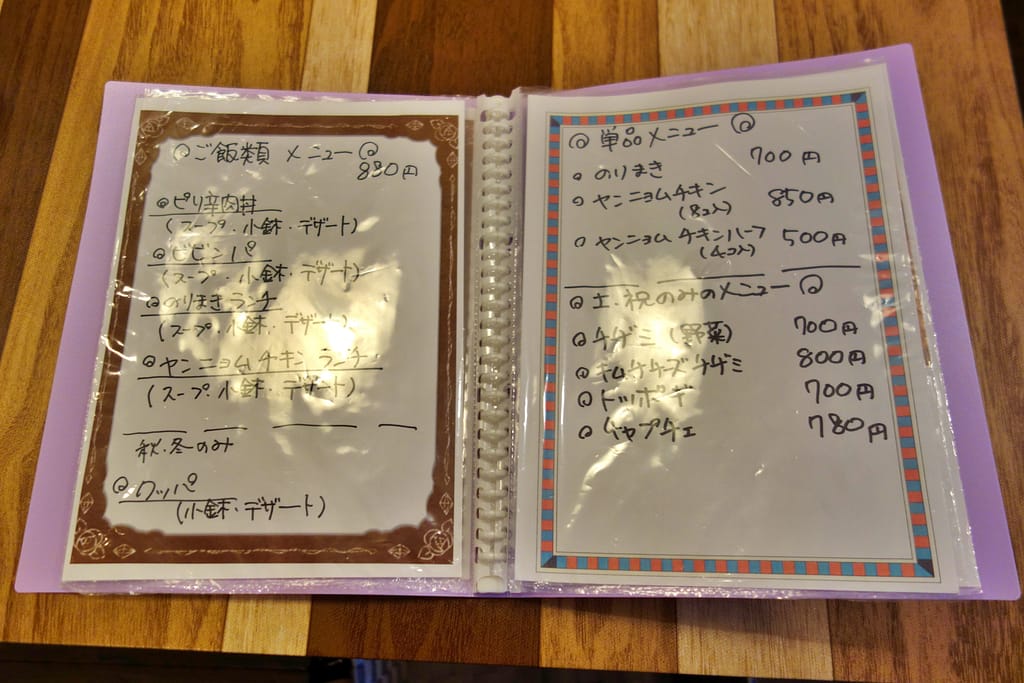 ご飯類 メニュー
880円
ピリ辛肉丼
(スープ・小鉢・デザート)
ビビンパ
(スープ・小鉢・デザート)
のりまきランチ
(スープ・小鉢・デザート)
ヤンニョムチキン ランチ
(スープ・小鉢・デザート)
秋・冬のみ
クッパ
(小鉢・デザート)
単品メニュー
のりまき 700円
ヤンニョムチキン 850円
(8コ入)
ヤンニョムチキンハーフ 500円
(4コ入)
土・祝のみのメニュー
チヂミ(野菜) 700円
キムチチーズチヂミ 800円
トッポギ 700円
チャプチェ 780円